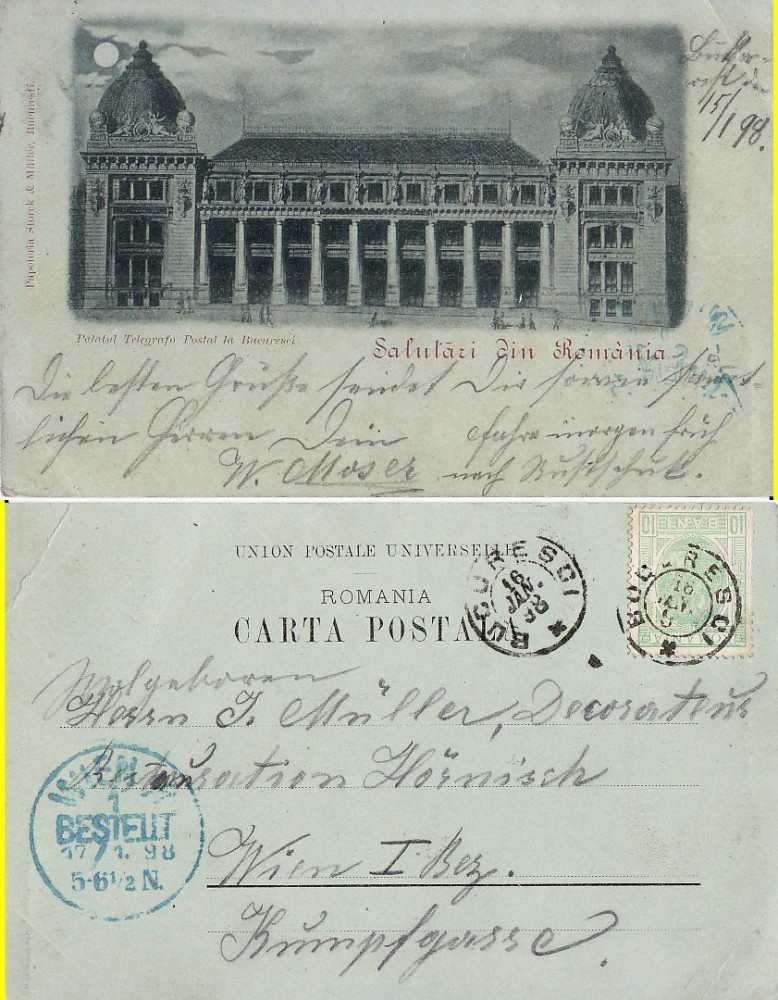 Papeteria Storck & Müller, Bucuresti.
Buka-
rest den
15/1 98.
Palatul Telegrafo Postal la Bucuresci
Salutări din România
Die besten Grüße sendet Dir sowie sämt-
lichen Herren Dein fahre morgen früh
W. Moser nach Rustschuk.
UNION POSTALE UNIVERSELLE
ROMANIA
CARTA POSTALA
BUCURESCI
16
JAN.
98
10 BANI 10
BUCURESCI
16
Wolgeboren
Herrn J. Müller, Decorateur
Restauration Hörnisch
Wien I Bez.
Kumpfgasse.
1
BESTELLT
17 1. 98
5-6½ N.